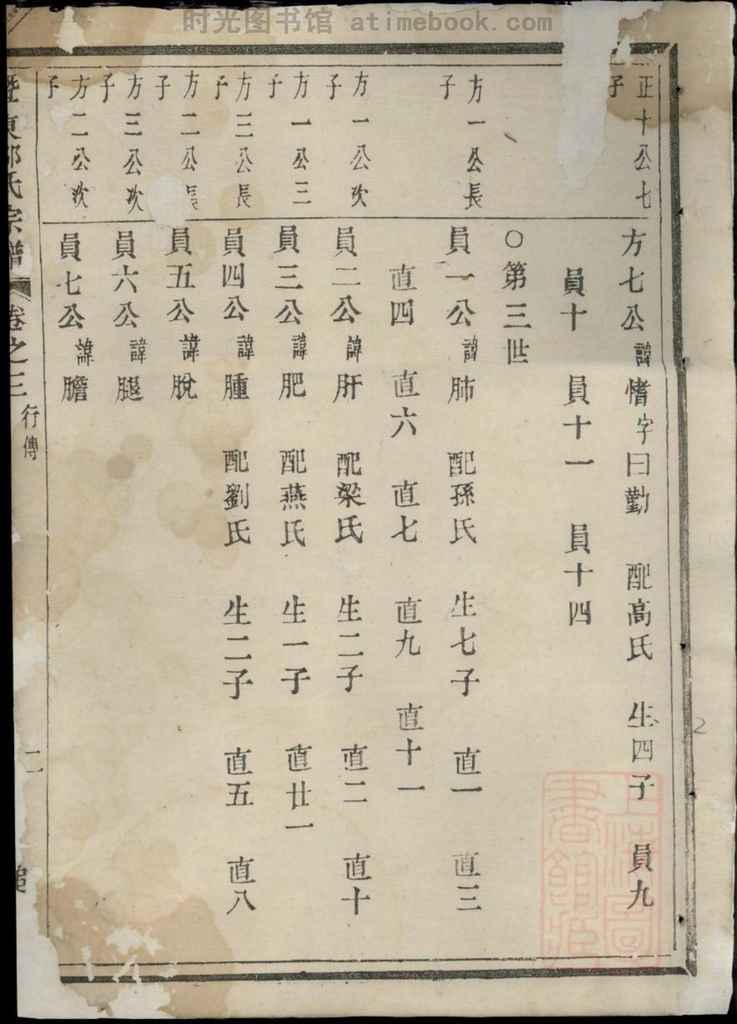 时光图书馆 atimebook.com
正十公七
子
方七公諱愭字曰勤 配高氏 生四子 員九
員十 員十一 員十四
○第三世
方一公長
子
員一公諱肺 配孫氏 生七子 直一 直三
直四 直六 直七 直九 直十一
方一公次
子
員二公諱肝 配梁氏 生二子 直二 直十
方一公三
子
員三公諱肥 配燕氏 生一子 直廿一
方三公長
子
員四公諱腫 配劉氏 生二子 直五 直八
方二公長
子
員五公諱脫
方三公次
子
員六公諱腿
方二公次
子
員七公諱膽
氏宗譜 卷之三 行傳 二
2